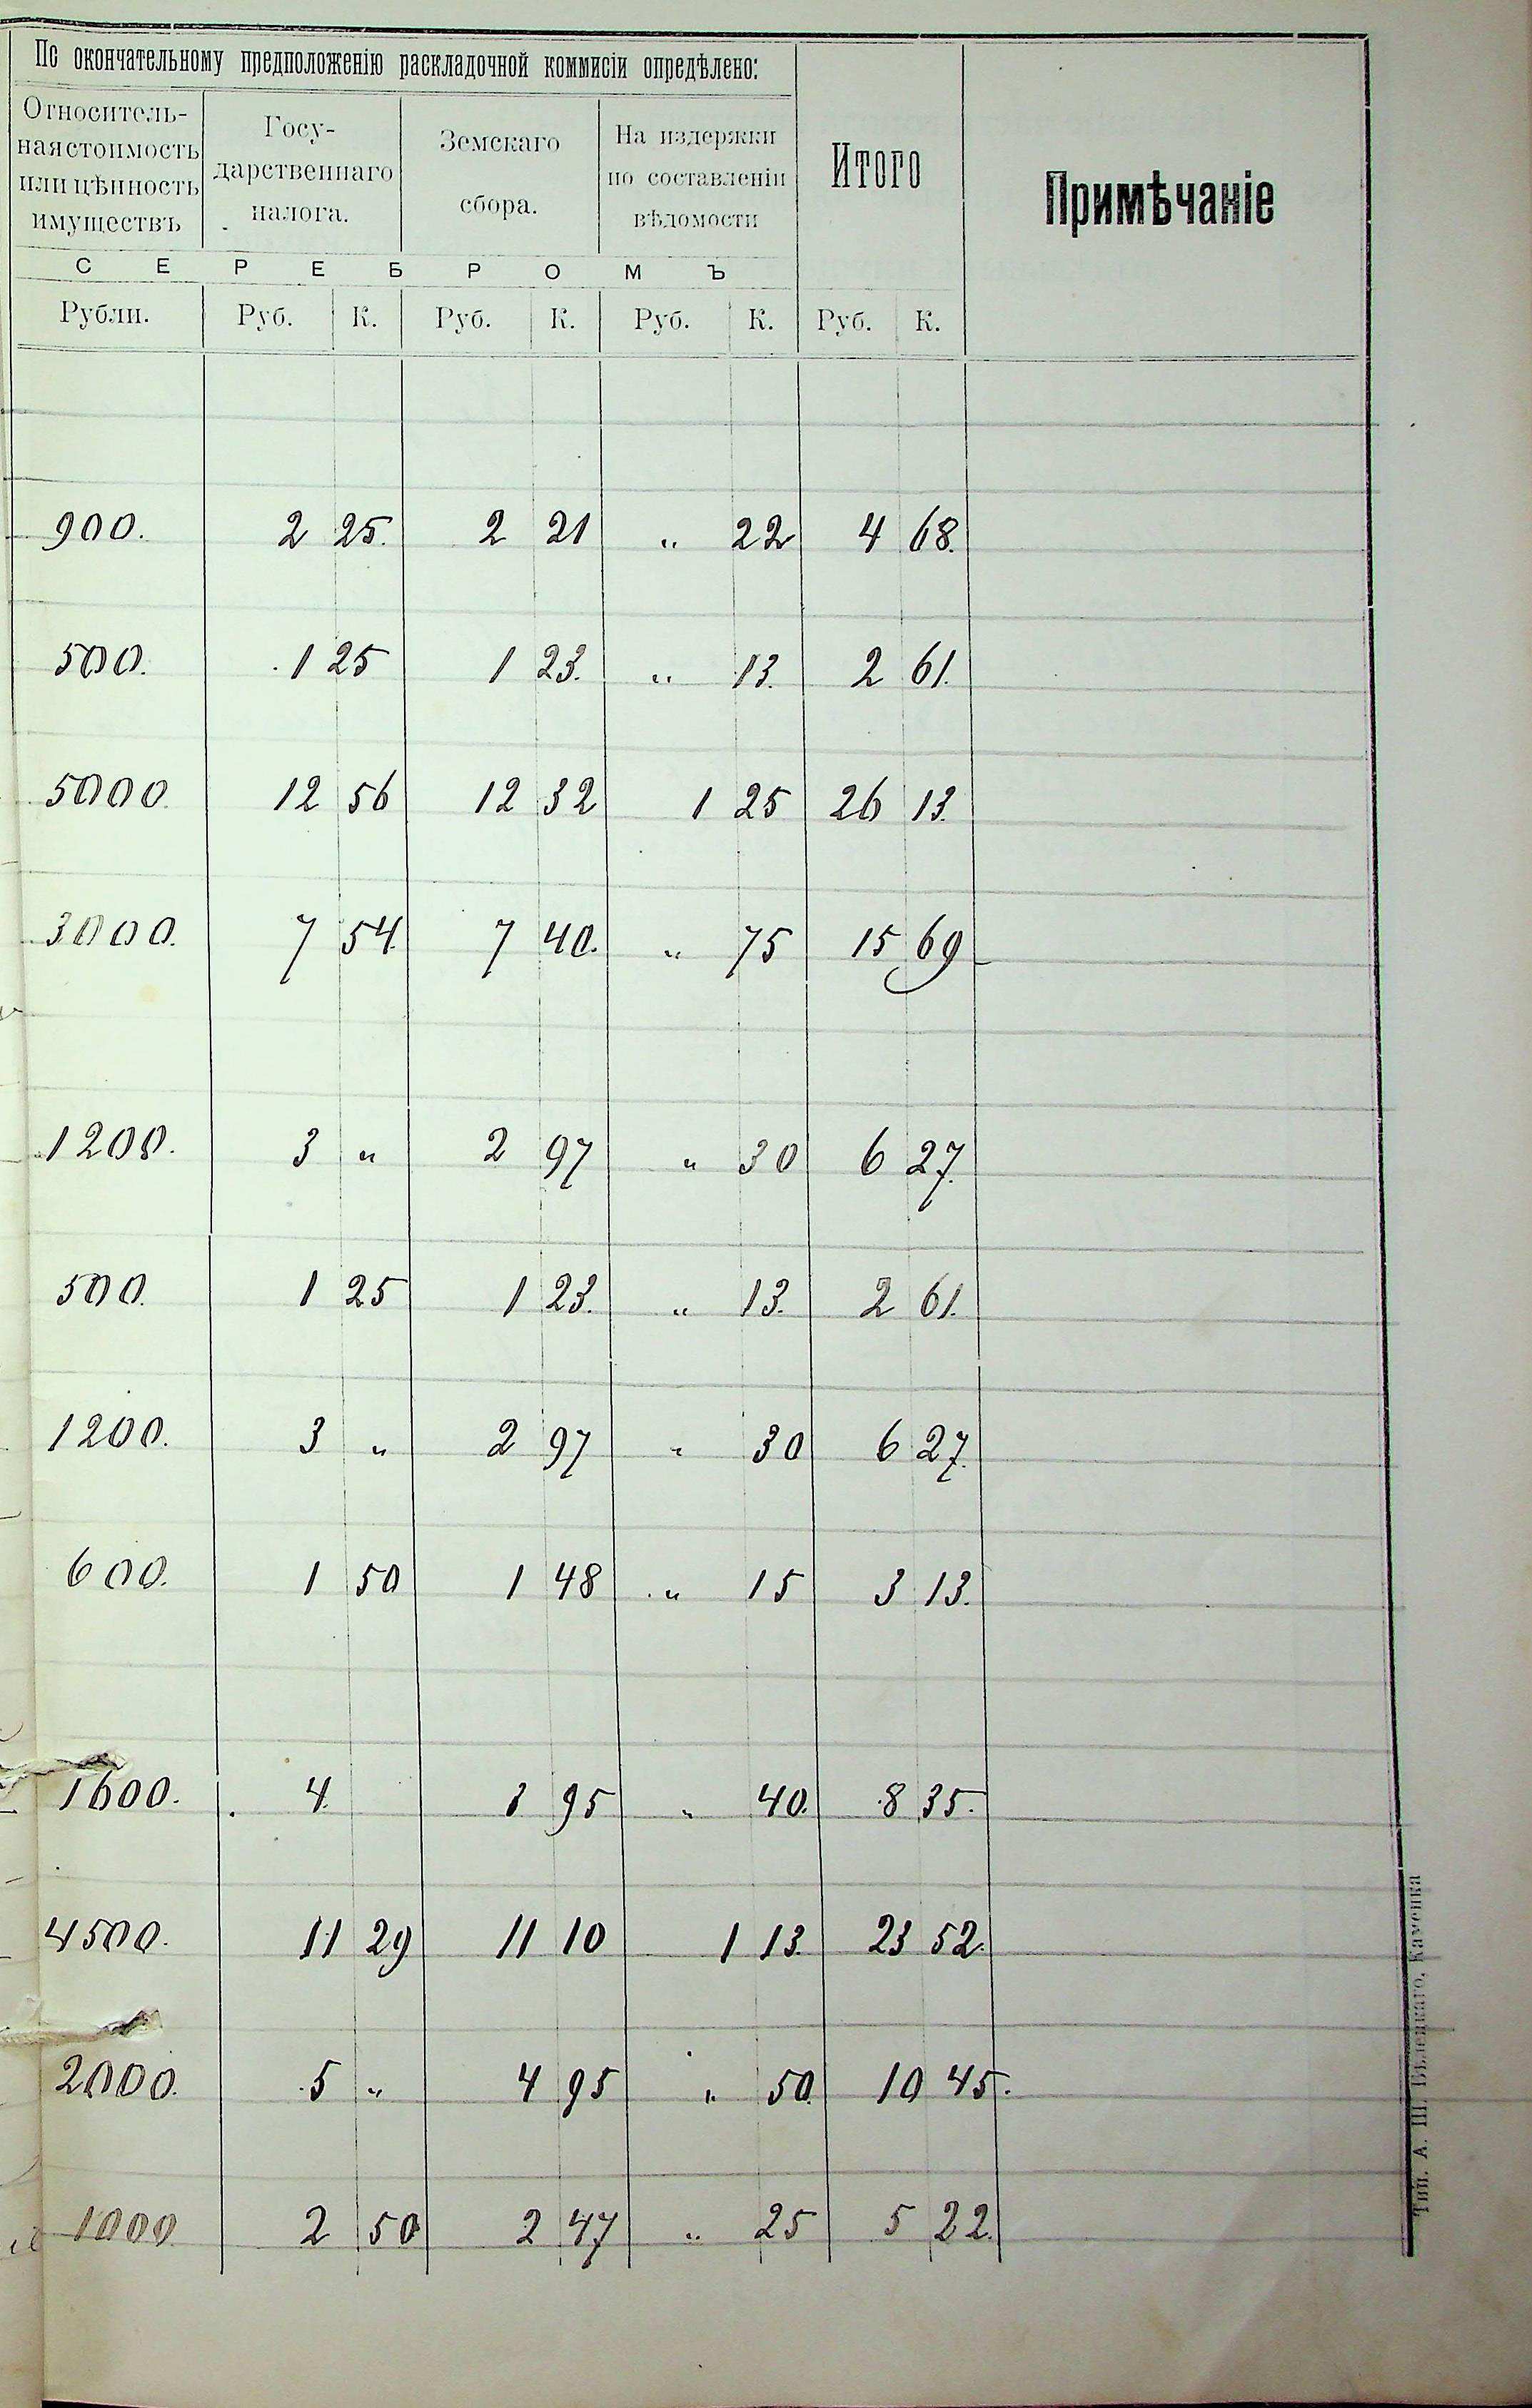 По окончательному предположенію раскладочной коммисіи опредѣлено:
Относитель-
ная стоимость
или цѣнность
имуществъ
Госу-
дарственнаго
налога.
Земскаго
сбора.
На издержки
по составленіи
вѣдомости
Итого
Примѣчаніе
СЕРЕБРОМЪ
Рубли. Руб. К. Руб. К. Руб. К. Руб. К.
900. 2 25. 2 21 " 22 4 68.
500. 1 25 1 23. " 13. 2 61.
5000 12 56 12 32 1 25 26 13.
3000. 7 54. 7 40. " 75 15 69
1200. 3 " 2 97 " 30 6 27.
500. 1 25 1 23. " 13. 2 61.
1200. 3 " 2 97 " 30 6 27.
600. 1 50 1 48 " 15 3 13.
1600. 4. 3 95 " 40. 8 35.
4500. 11 29 11 10 1 13. 23 52.
2000. 5 " 4 95 " 50. 10 45.
1000 2 50 2 47 " 25 5 22.
Тип. А. Ш. Бѣленкаго, Каменка